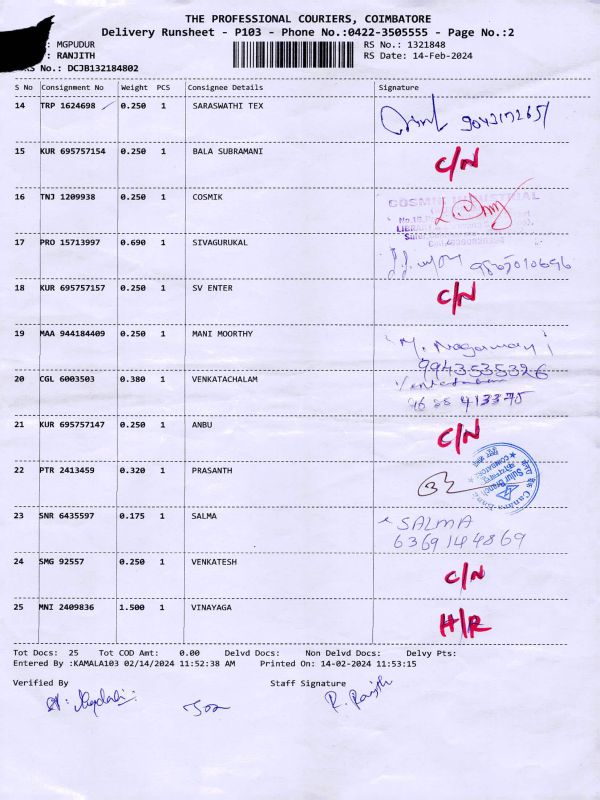 THE PROFESSIONAL COURIERS, COIMBATORE
Delivery Runsheet - P103 - Phone No.:0422-3505555 - Page No.:2
: MGPUDUR RS No.: 1321848
: RANJITH RS Date: 14-Feb-2024
RS No.: DCJB132184802
S No Consignment No Weight PCS Consignee Details Signature
14 TRP 1624698 0.250 1 SARASWATHI TEX
15 KUR 695757154 0.250 1 BALA SUBRAMANI C/N
16 TNJ 1209938 0.250 1 COSMIK
17 PRO 15713997 0.690 1 SIVAGURUKAL
18 KUR 695757157 0.250 1 SV ENTER C/N
19 MAA 944184409 0.250 1 MANI MOORTHY
9943535326
20 CGL 6003503 0.380 1 VENKATACHALAM
21 KUR 695757147 0.250 1 ANBU C/N
22 PTR 2413459 0.320 1 PRASANTH
23 SNR 6435597 0.175 1 SALMA SALMA
6369144869
24 SMG 92557 0.250 1 VENKATESH C/N
25 MNI 2409836 1.500 1 VINAYAGA H/R
Tot Docs: 25 Tot COD Amt: 0.00 Delvd Docs: Non Delvd Docs: Delvy Pts:
Entered By :KAMALA103 02/14/2024 11:52:38 AM Printed On: 14-02-2024 11:53:15
Verified By Staff Signature
R. Ranjith